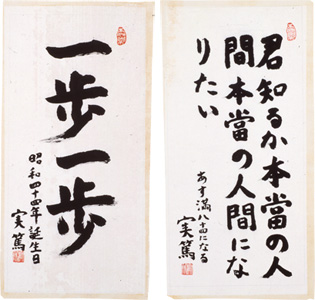 君知るか本當の人
間本當の人間にな
りたい
あす満八十四になる
実篤
一歩一歩
昭和四十四年誕生日
実篤